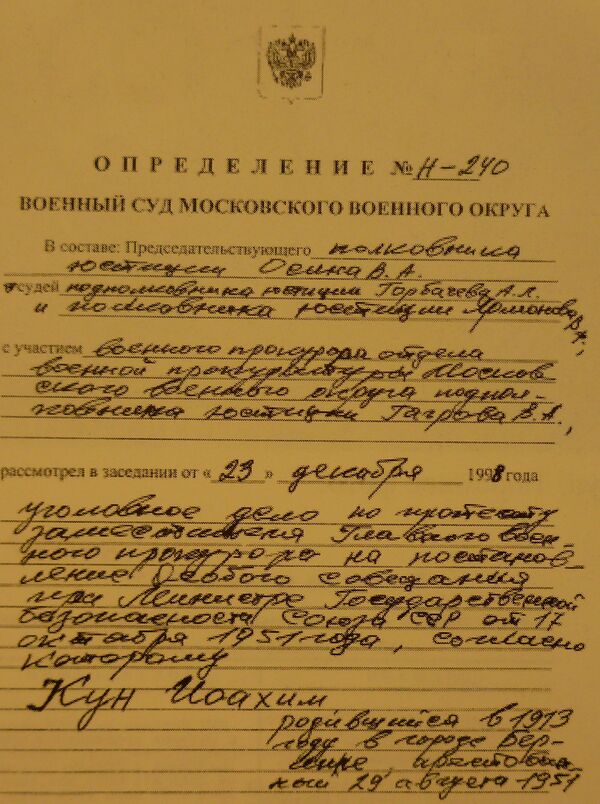 ОПРЕДЕЛЕНИЕ № Н-240
ВОЕННЫЙ СУД МОСКОВСКОГО ВОЕННОГО ОКРУГА
В составе: Председательствующего полковника
юстиции Осина В.А.
и судей подполковника юстиции Горбачева А.Л.
и полковника юстиции
с участием военного прокурора отдела
военной прокуратуры Москов
ского военного округа подпол-
ковника юстиции В.А.,
рассмотрел в заседании от « 23 » декабря 1998 года
уголовное дело по протесту
заместителя Главного воен-
ного прокурора на постанов
ление Особого совещания
при Министре Государственной
безопасности Союза ССР от 17
октября 1951 года, согласно
которому
Кун Иоахим
родившийся в 1913
году в городе Бер-
лине, арестован-
ный 29 августа 1951